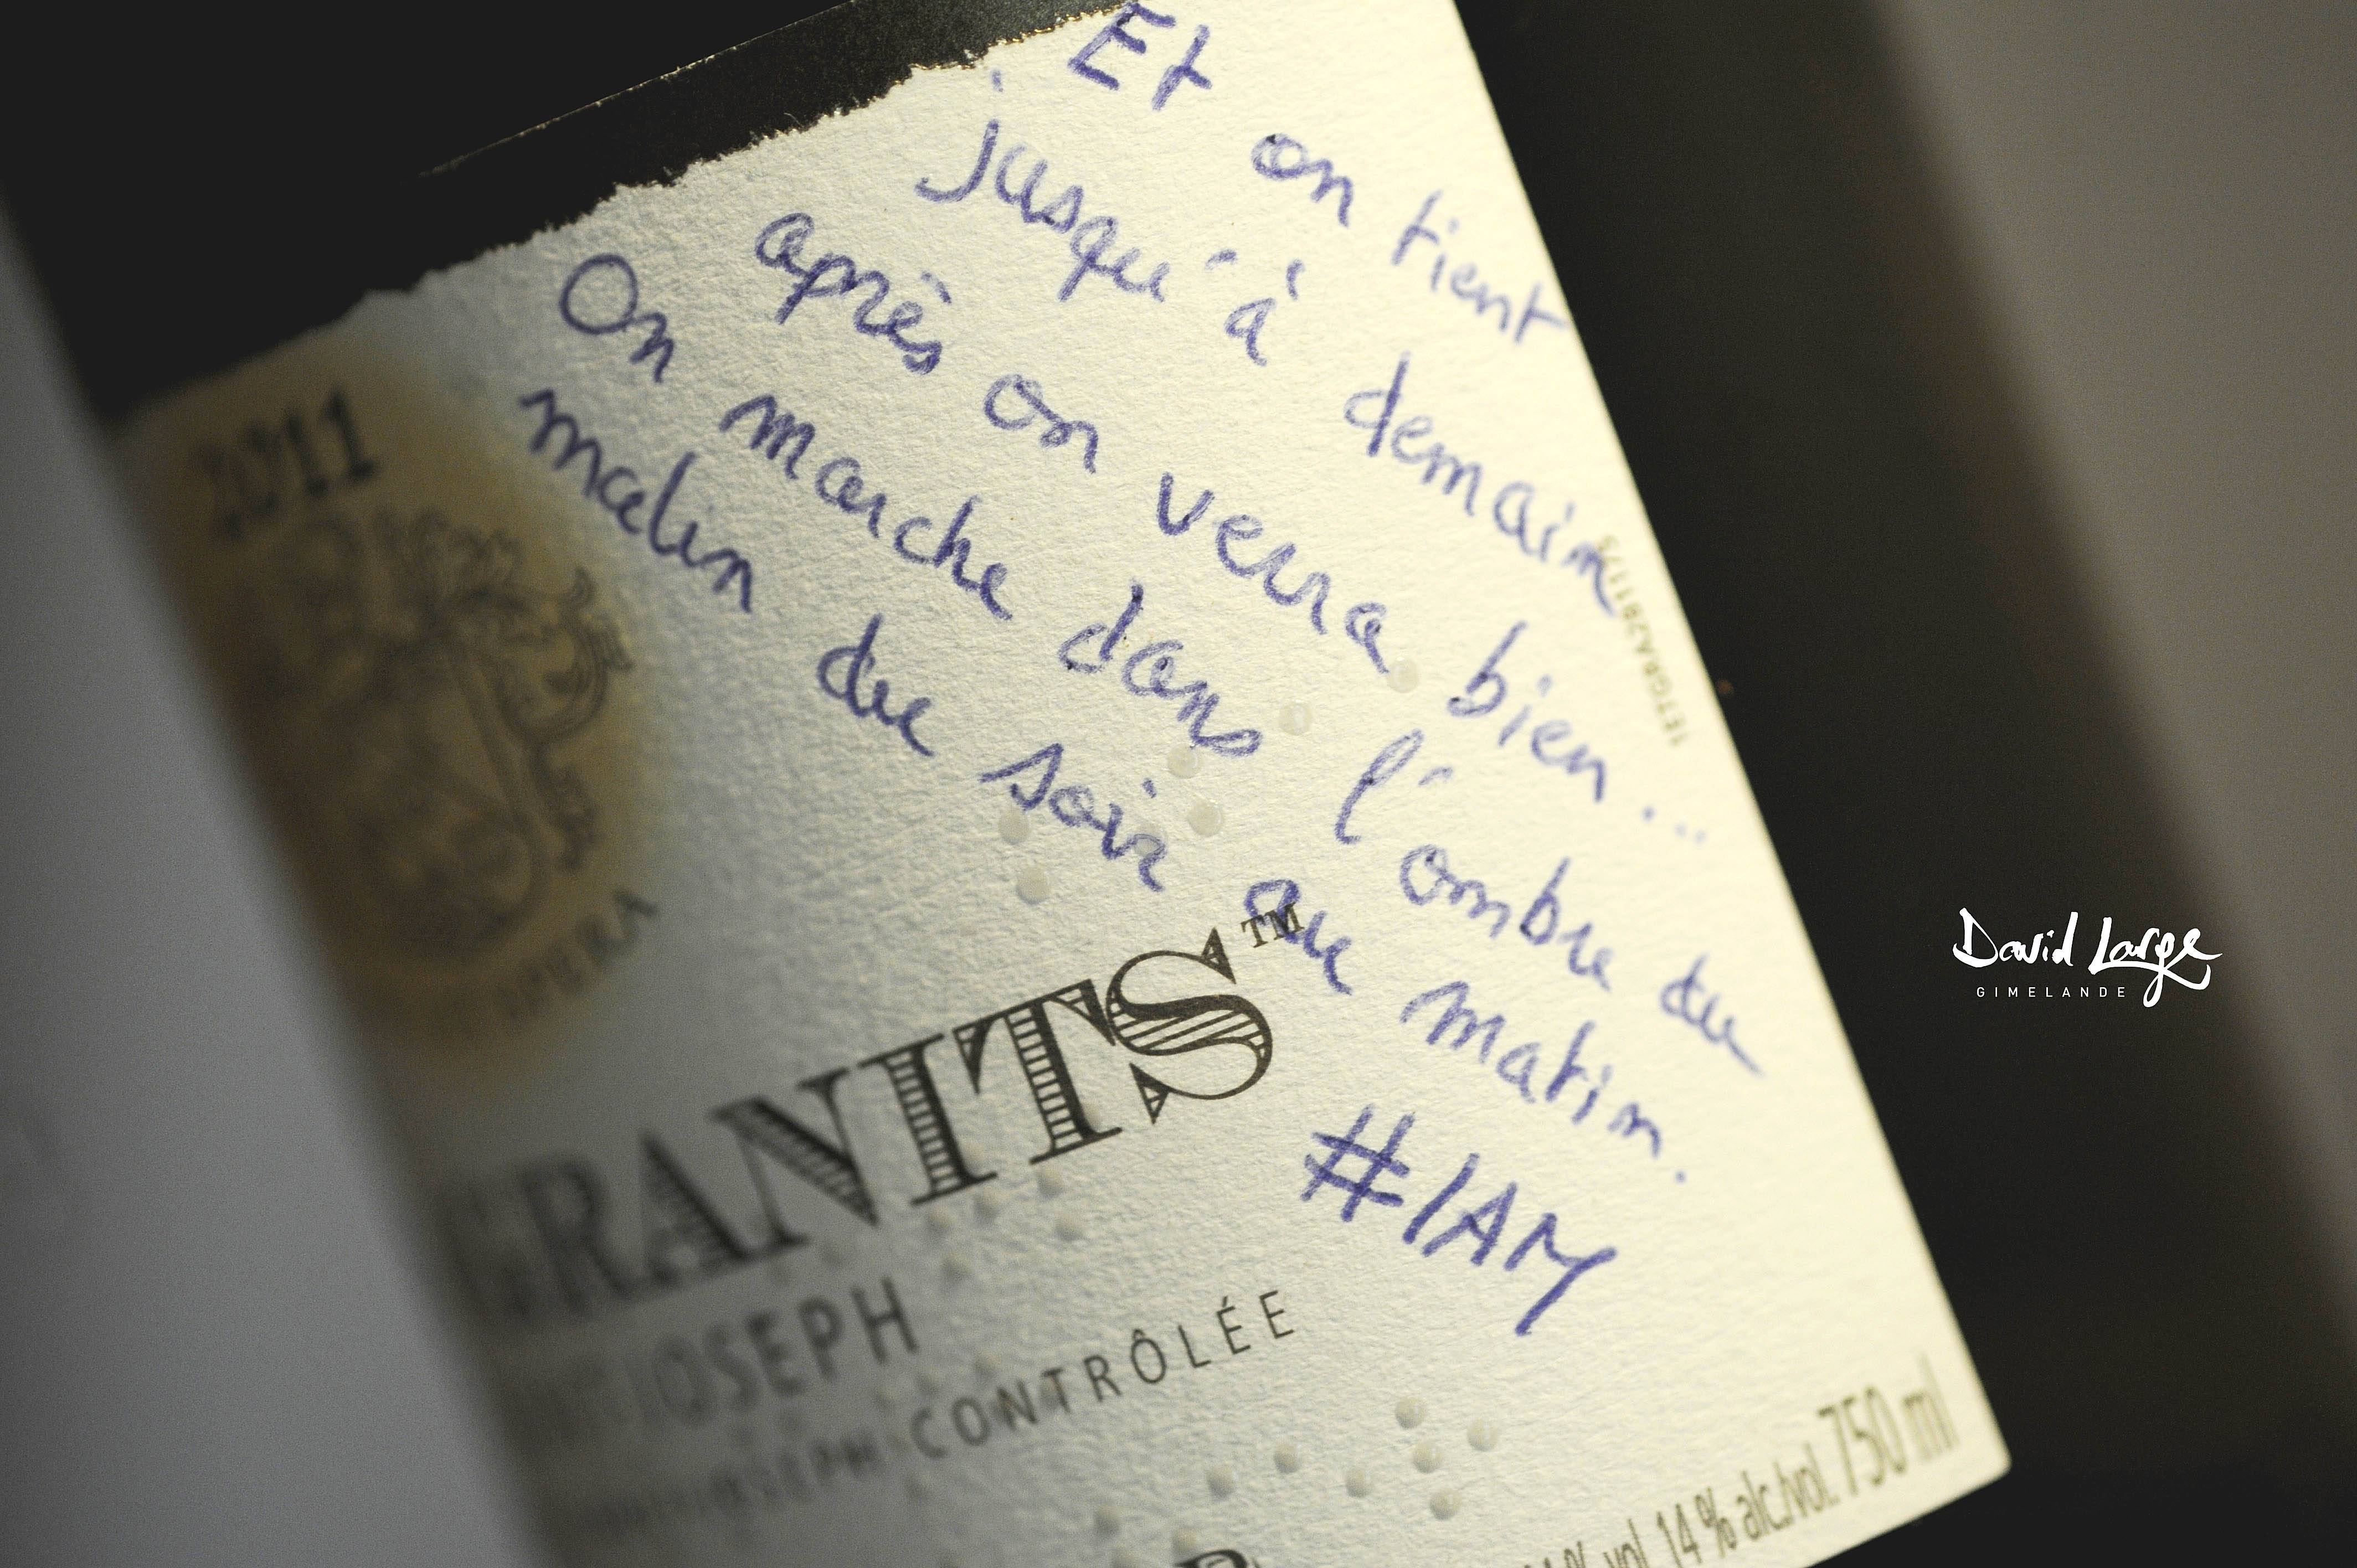 Et on tient
jusqu'à demain
après on verra bien...
On marche dans l'ombre du
malin du soir au matin.
#IAM
2011
OPERA
GRANITS™
JOSEPH
JOSEPH CONTRÔLÉE
vol. 14 % alc./vol. 750 ml
David Large
GIMELANDE